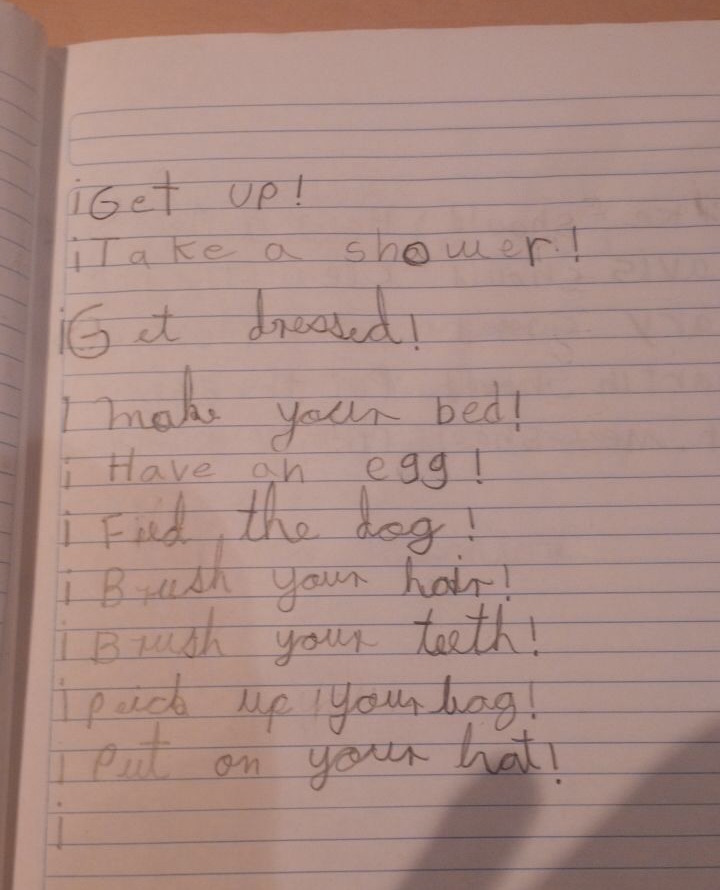 ¡Get up!
¡Take a shower!
¡Get dressed!
¡make your bed!
¡Have an egg!
¡Fied the dog!
¡Brush your hair!
¡Brush your teeth!
¡peick up your bag!
¡Put on your hat!
¡